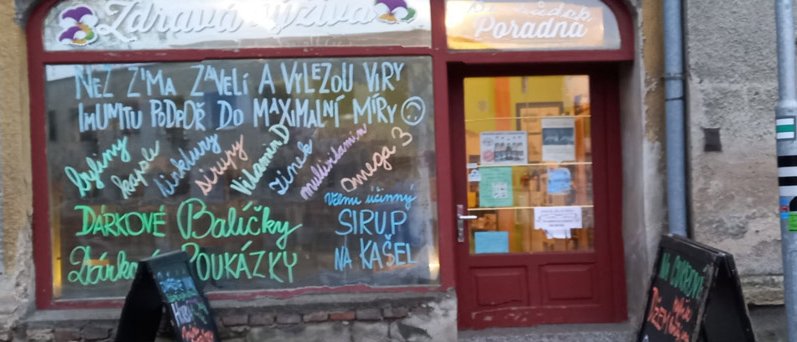 Zdravá výživa
Poradna
NEŽ ZIMA ZAVELÍ A VYLEZOU VIRY
IMUNITU PODPOŘ DO MAXIMÁLNÍ MÍRY
byliny
kapky
tinktury
sirupy
Vitamin D
zinek
multivitamin
omega 3
DÁRKOVÉ Balíčky
Dárkové POUKÁZKY
Velmi účinný
SIRUP
NA KAŠEL